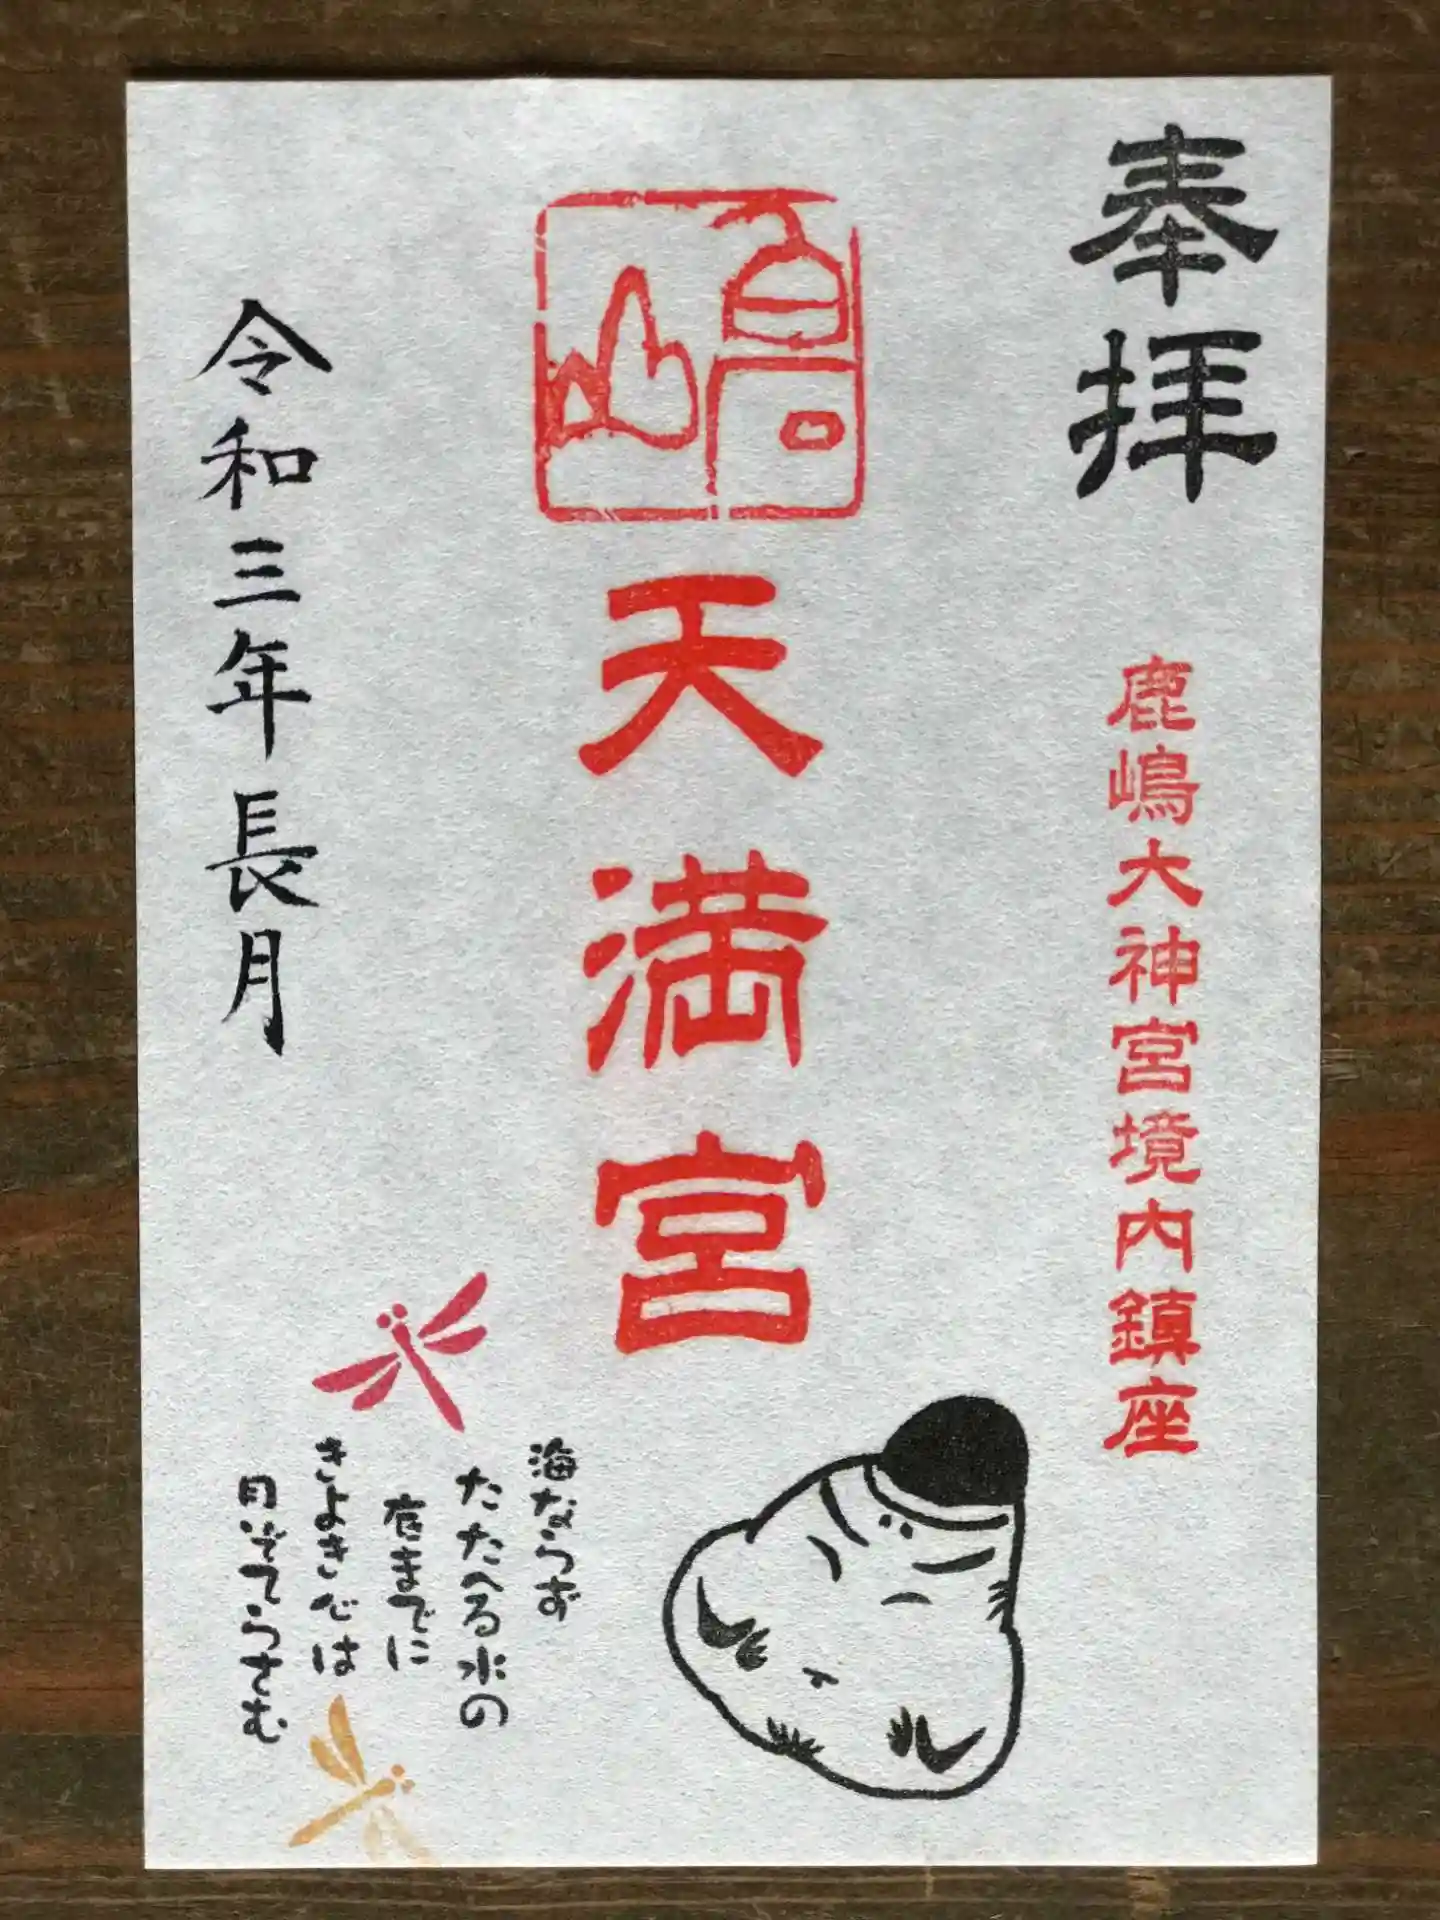 奉拝
鹿嶋大神宮境内鎮座
嶋
天満宮
海ならず
たたへる水の
底までに
きよき心は
月ぞてらさむ
令和三年長月